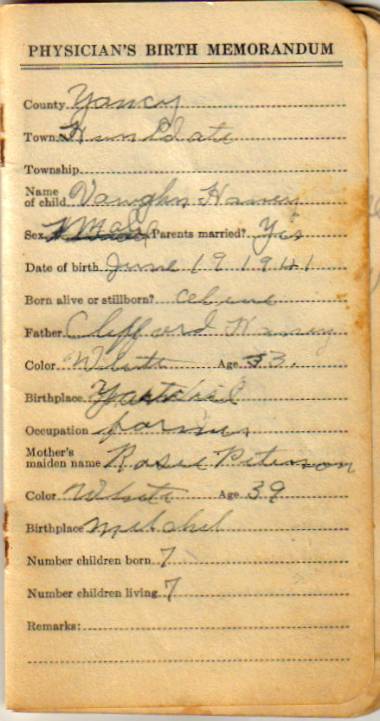 PHYSICIAN'S BIRTH MEMORANDUM
County Yancy
Town Huntdale
Township
Name of child Vaughn
Sex Male Parents married? Yes
Date of birth June 19 1941
Born alive or stillborn?
Father Clifford
Color White Age 53.
Birthplace
Occupation farmer
Mother's maiden name Rosie Peterson
Color White Age 39
Birthplace Mitchel
Number children born 7
Number children living 7
Remarks: